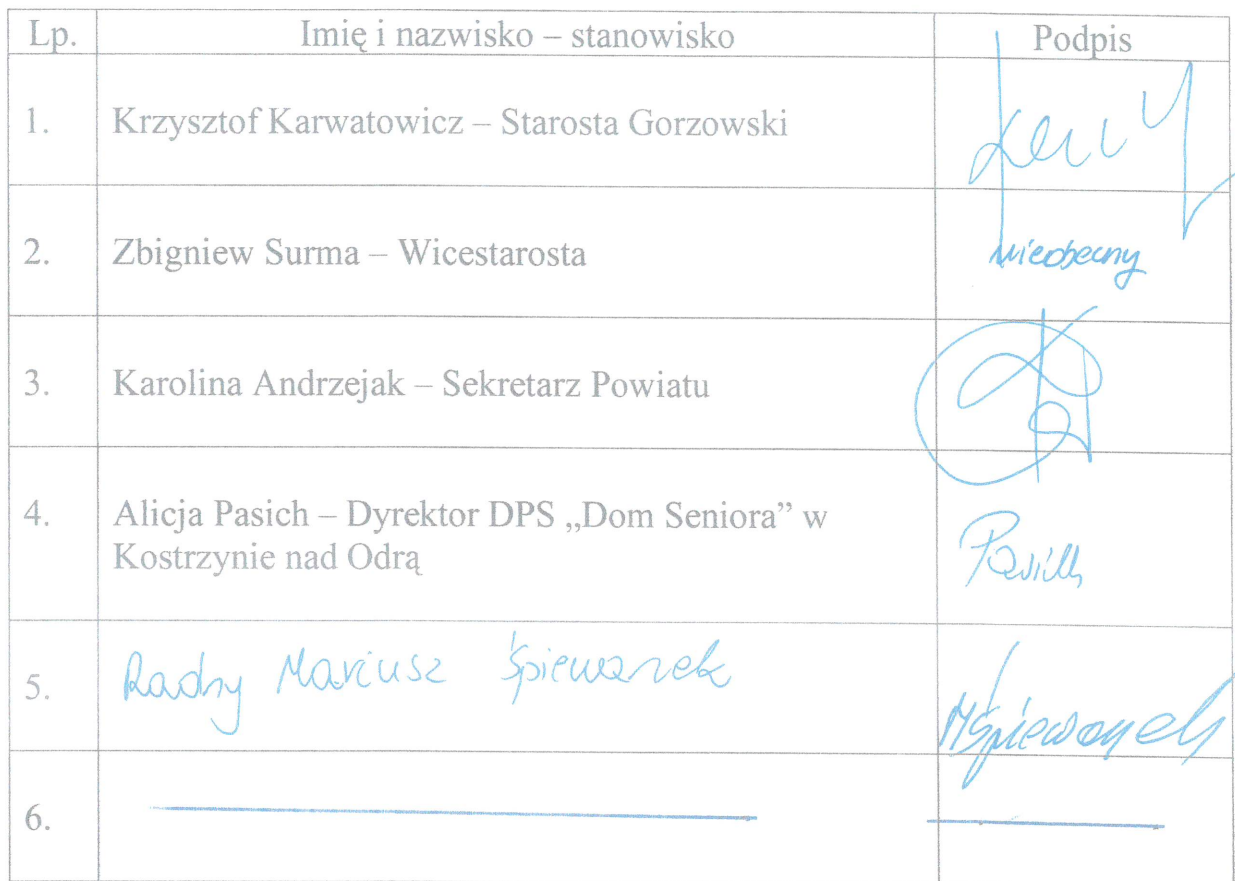 Lp. Imię i nazwisko – stanowisko Podpis
1. Krzysztof Karwatowicz – Starosta Gorzowski
2. Zbigniew Surma – Wicestarosta nieobecny
3. Karolina Andrzejak – Sekretarz Powiatu
4. Alicja Pasich – Dyrektor DPS „Dom Seniora” w
Kostrzynie nad Odrą
Pasich
5. Radny Mariusz Śpiewanek
6.